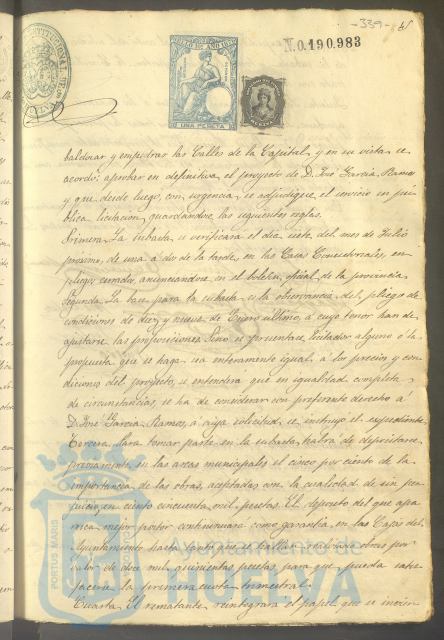 -339-
N.0.190.983
SELLO 11º AÑO 18
UNA PESETA
baldosar y empedrar las Calles de la Capital, y en su vista se
acordó: aprobar en definitiva el proyecto de D. José García Ramos
y que desde luego, con urgencia, se adjudique el servicio en pú-
blica licitacion, guardandose las siguientes reglas.
Primera. La subasta se verificará el dia siete del mes de Julio
proximo, de una á dos de la tarde, en las Casas Consistoriales, en
pliego cerrado, anunciandose en el boletin oficial de la provincia
Segunda. La base para la subasta es la observancia del pliego de
condiciones de diez y nueve de Enero ultimo, á cuyo tenor han de
ajustarse las proposiciones. Sino se presentase licitador alguno ó la
propuesta que se haga sea enteramente igual á los precios y con-
diciones del proyecto, se entenderá que en igualdad completa
de circunstancias, se ha de considerar con preferente derecho á
D. José García Ramos, á cuya solicitud se instruyó el expediente
Tercera. Para tomar parte en la subasta, habrá de depositarse
previamente en las arcas municipales el cinco por ciento de la
importancia de las obras, aceptadas con la cualidad de sin per-
juicio, en ciento cincuenta mil pesetas. El deposito del que apa-
rezca mejor postor continuará como garantia, en las Cajas del
Ayuntamiento hasta tanto que se hallen realizadas obras por
valor de doce mil quinientas pesetas para que pueda satis-
facerse la primera cuota trimestral.
Cuarta. El rematante reintegrará el papel que se invier-
PORTUS MARIS
Ayuntamiento de
HUELVA